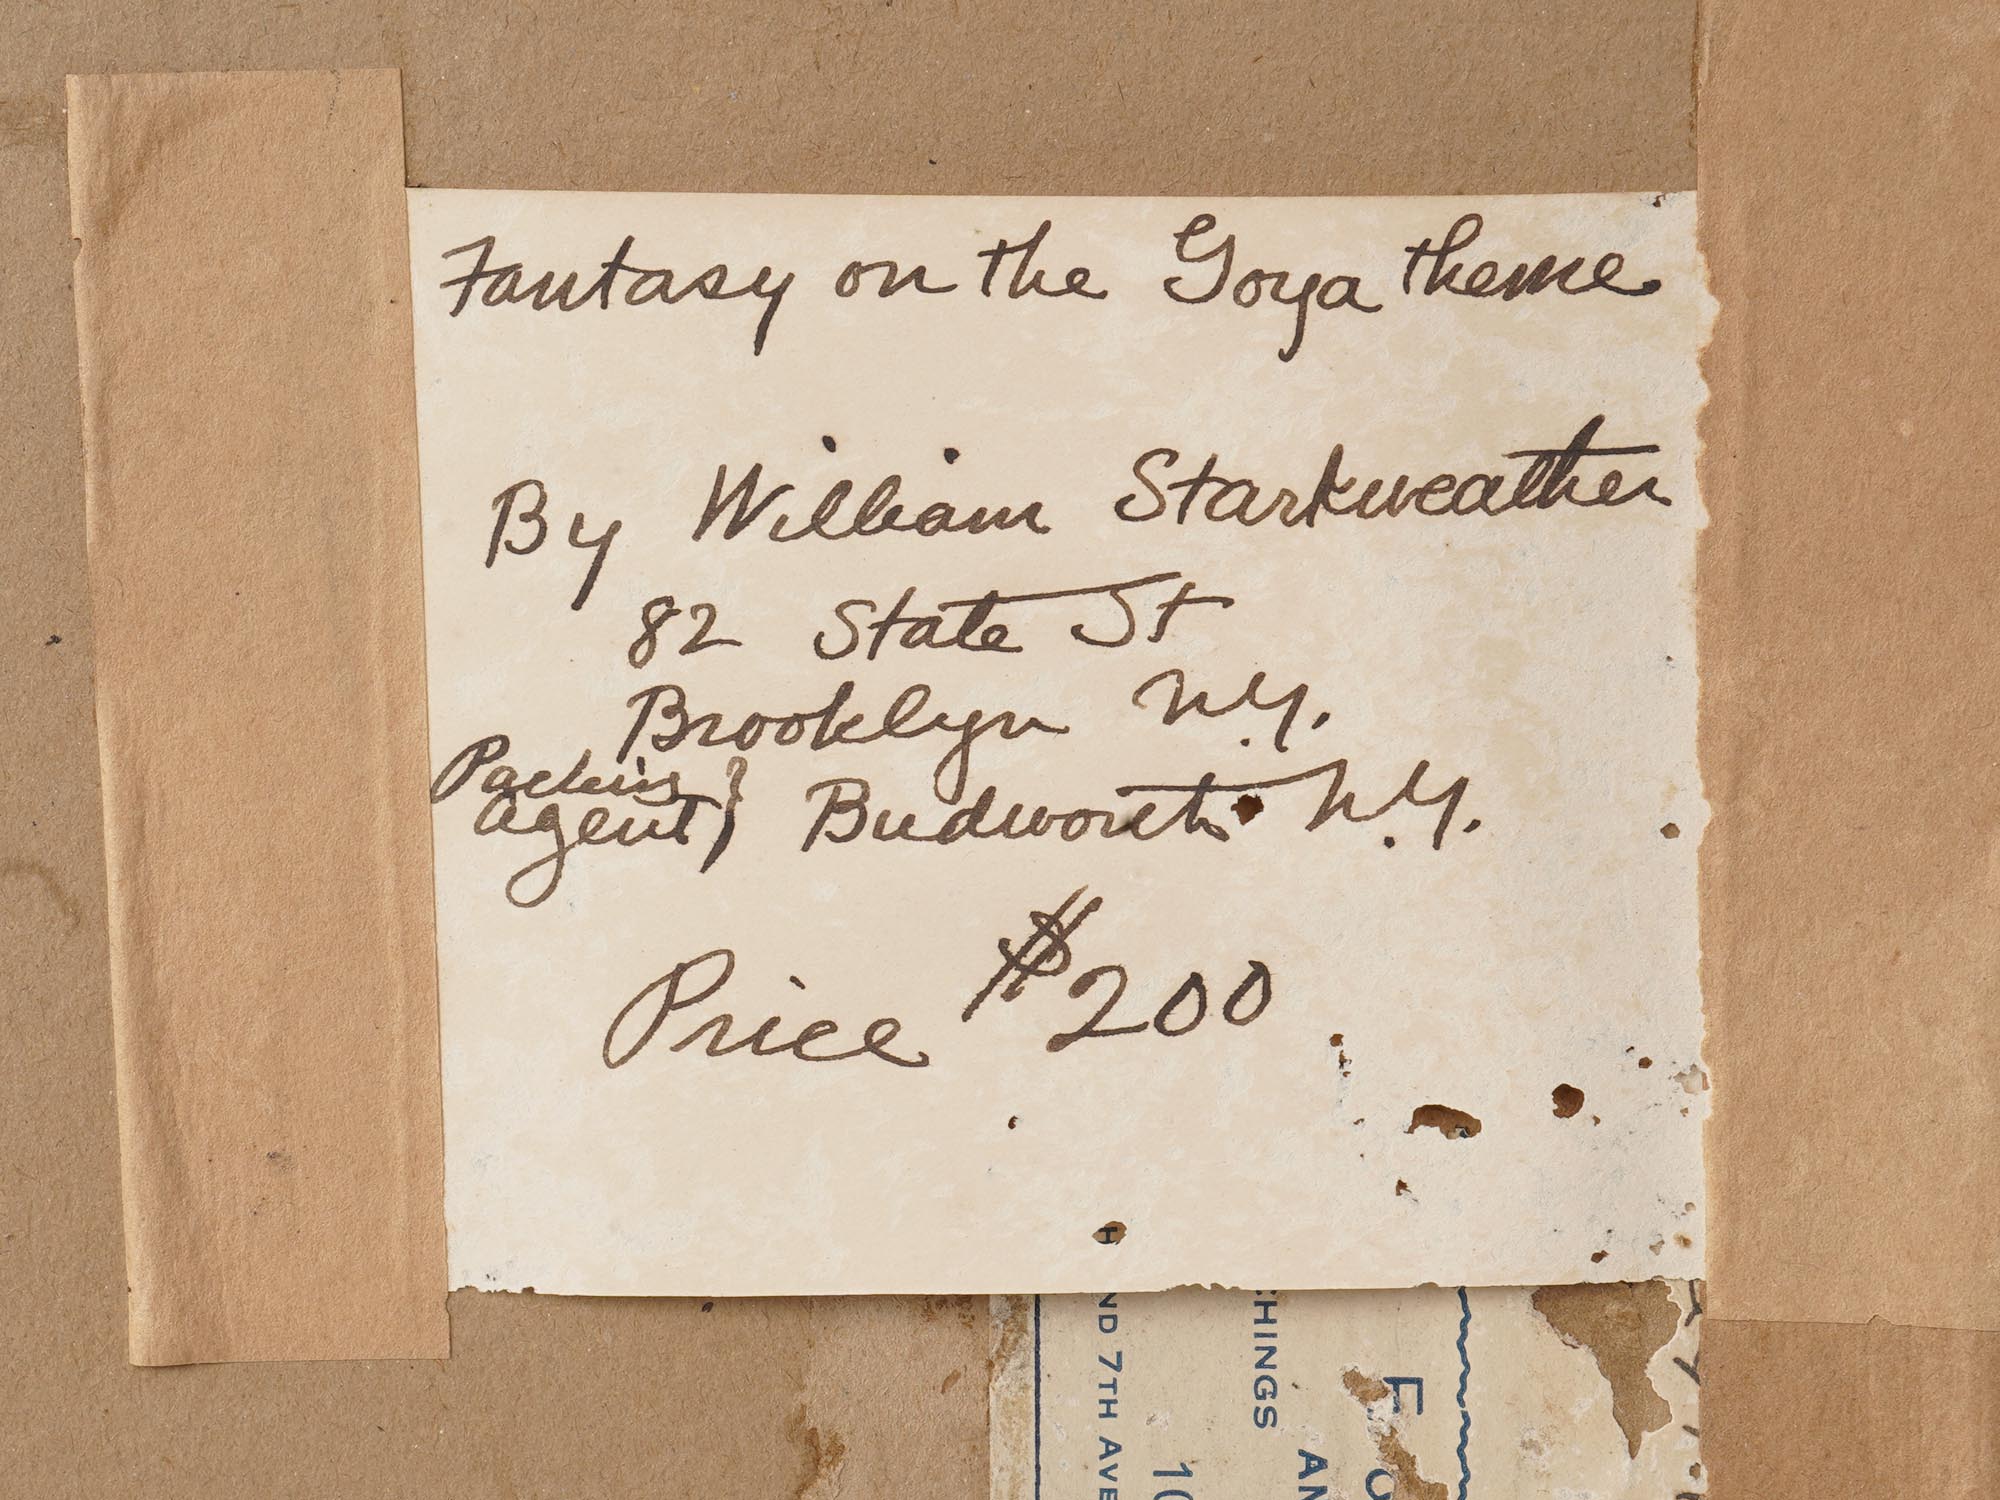 Fantasy on the Goya theme
By William Starkweather
82 State St
Brooklyn N.Y.
Packing
Agent } Budworth N.Y.
Price $200
H
ND 7TH AVE
10
CHINGS
AN
F